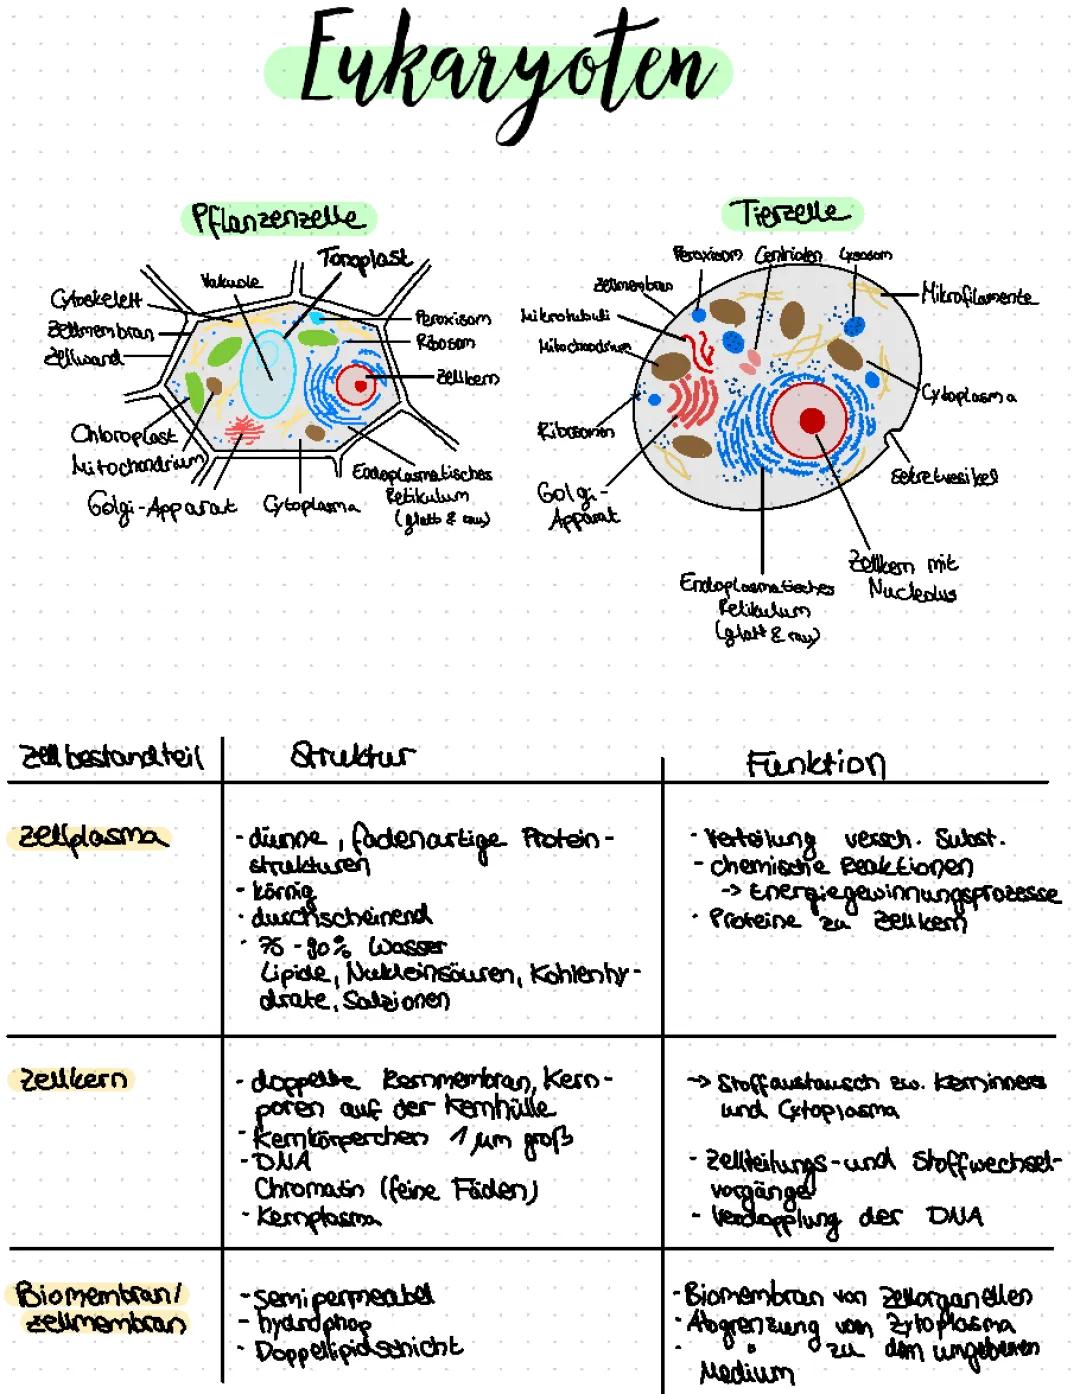 Eukaryoten
Pflanzenzelle
Tonoplast
Vakuole
Cytoskelett
Zellmembran
Zellwand
Peroxisom
Ribosom
Zellkern
Chloroplast
Mitochondrium
Golgi-Apparat
Cytoplasma
Endoplasmatisches
Retikulum
(glatt & rau)
Tierzelle
Peroxisom
Centriolen
Lysosom
Zellmembran
Mikrotubuli
Mitochondrium
Mikrofilamente
Cytoplasma
Ribosomen
Sekretvesikel
Golgi-
Apparat
Zellkern mit
Nucleolus
Endoplasmatisches
Retikulum
(glatt & rau)
Zellbestandteil
Struktur
Funktion
Zellplasma
- dünne, fadenartige Protein-
strukturen
- körnig
- durchscheinend
- 75-90% Wasser
Lipide, Nukleinsäuren, Kohlenhy-
drate, Salzionen
- Verteilung versch. Subst.
- chemische Reaktionen
-> Energiegewinnungsprozesse
- Proteine zu Zellkern
Zellkern
- doppelte Kernmembran, Kern-
poren auf der Kernhülle
- Kernkörperchen 1 µm groß
- DNA
Chromatin (feine Fäden)
- Kernplasma
-> Stoffaustausch zw. Kerninneres
und Cytoplasma
- Zellteilungs- und Stoffwechsel-
vorgänge
- Verdopplung der DNA
Biomembran/
Zellmembran
- semipermeabel
- hydrophop
- Doppellipidschicht
- Biomembran von Zellorganellen
- Abgrenzung vom Zytoplasma
- " zu dem umgebenen
Medium